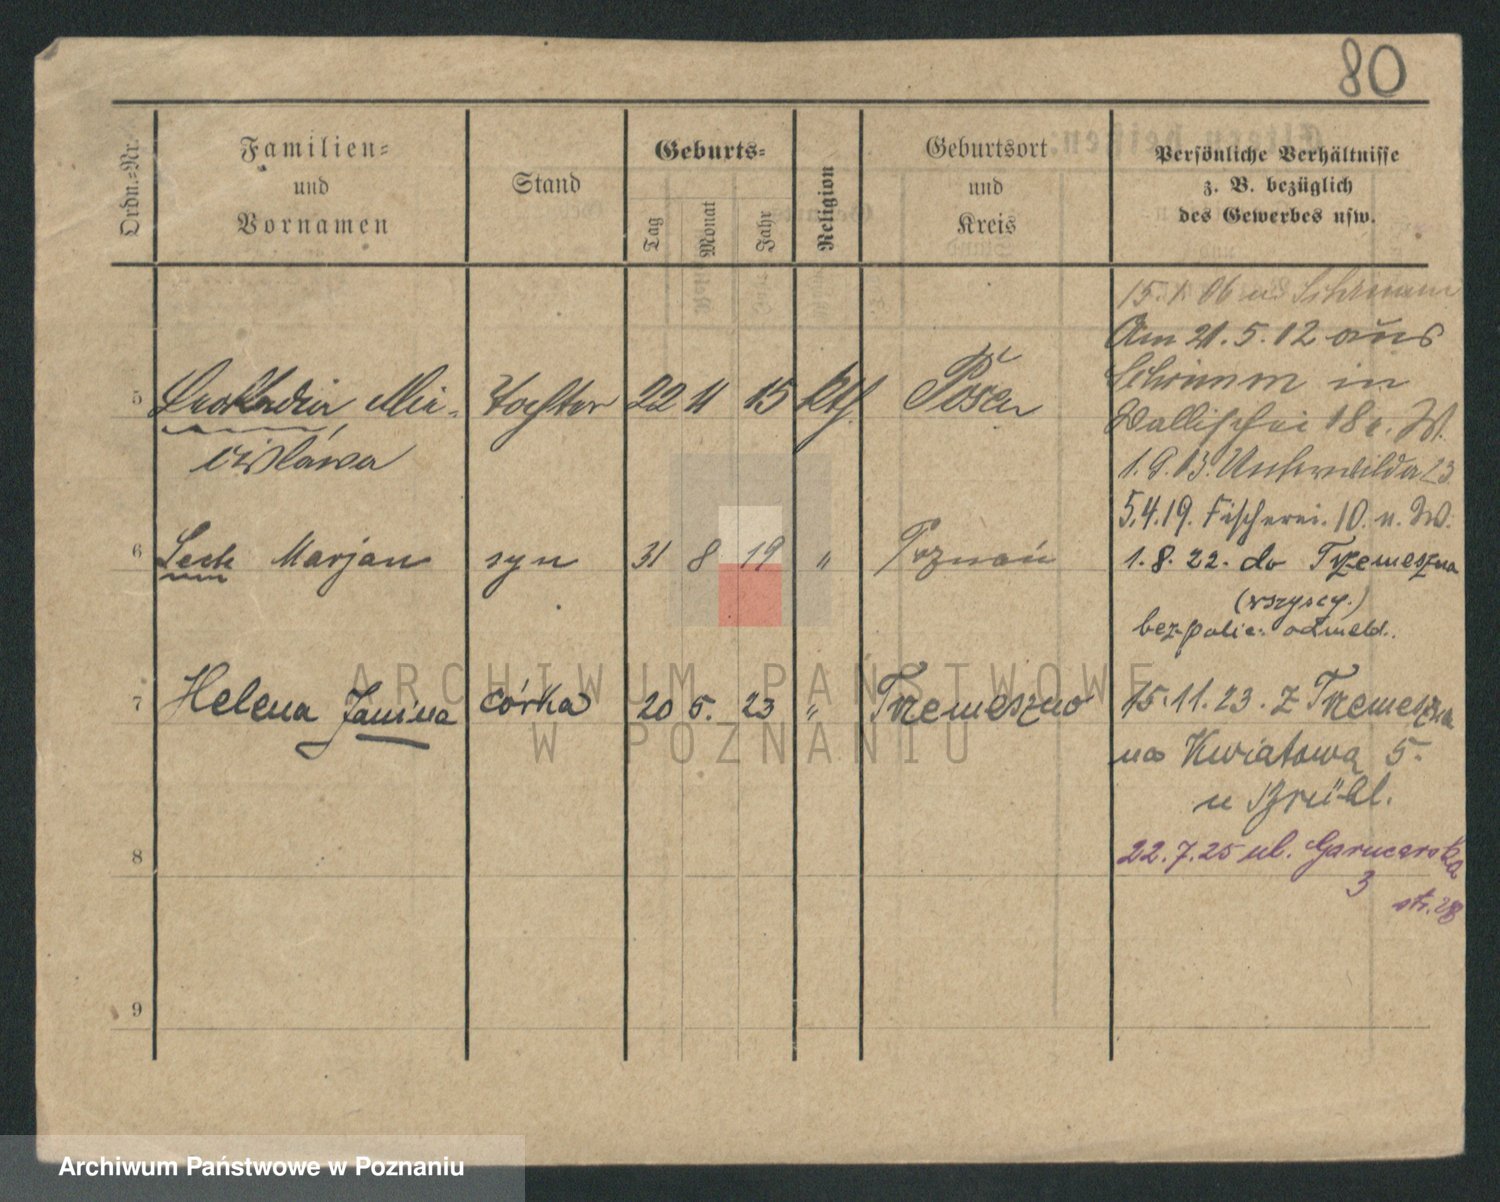 80
Ordn.-Nr.
Familien-
und
Vornamen
Stand
Geburts-
Tag
Monat
Jahr
Religion
Geburtsort
und
Kreis
Persönliche Verhältnisse
z. B. bezüglich
des Gewerbes usw.
15.1.06 n. Schrimm
Am 21.5.12 aus
Schrimm in
Wallischei 18 n. W.
1.9.13. Unterwilda 23
5 Leokadia Mie- Tochter 22 11 15 kth Posen
cisława
5.4.19. Fischerei. 10. n. W.
6 Lech Marjan syn 31 8 19 " Poznań
1.8.22. do Trzemeszna
(wszyscy.)
bez polic. odmeld.
7 Helena Janina córka 20 5. 23 " Trzemeszno
15.11.23. z Trzemeszna
na Kwiatową 5.
u Brühl.
8
22.7.25 ul. Garncarska
3
str. 28
9
ARCHIWUM PAŃSTWOWE
W POZNANIU
Archiwum Państwowe w Poznaniu